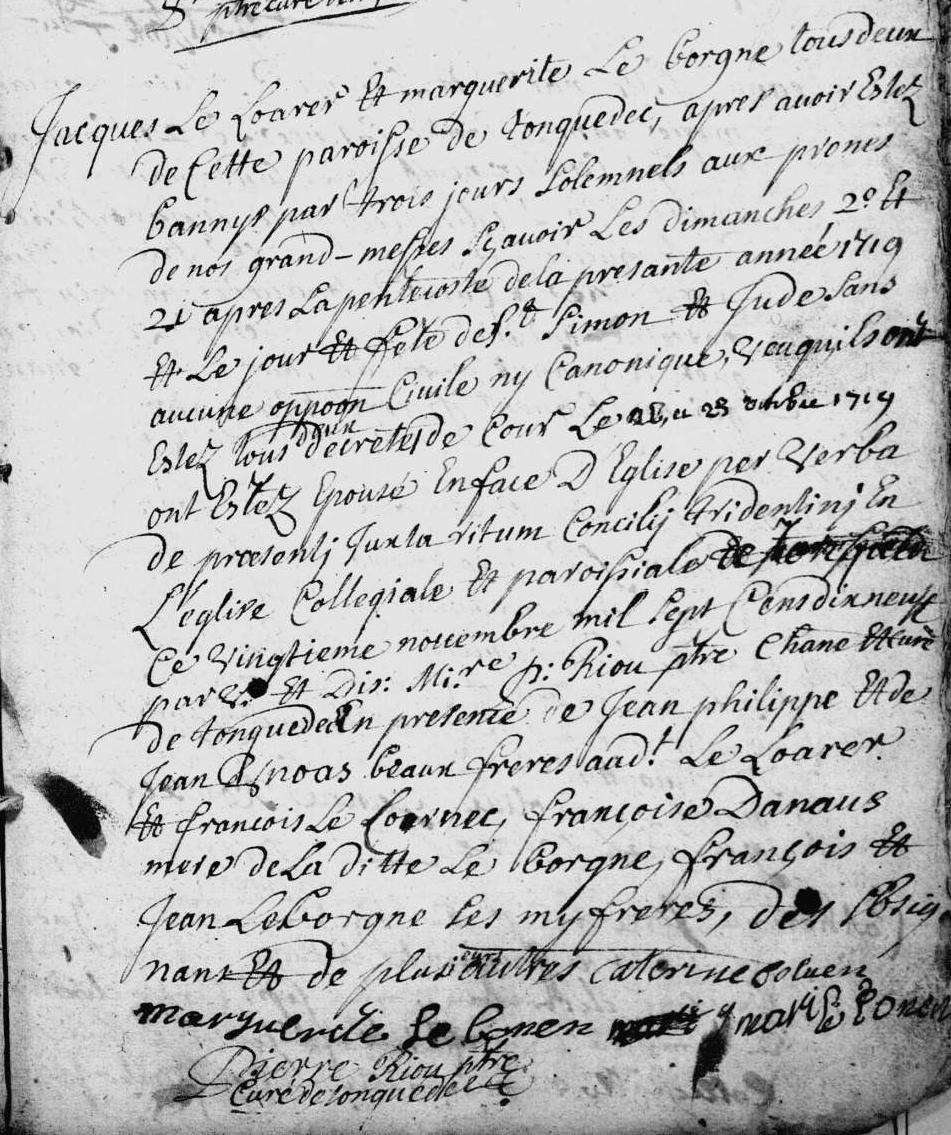 ptre curé
Jacques Le Loarer Et marguerite Le borgne tous deux
de Cette paroisse de tonquedec, apres avoir Estez
bannys par trois jours solemnels aux prones
de nos grand-messes sçavoir Les dimanches 20 Et
21 apres La pentecoste de la presante année 1719
Et Le jour Et féte de st Simon Et Jude sans
aucune oppoon Civile ny Canonique, Veu quils ont
Estez tous deux décretés de Cour Le 23 octbre 1719
ont Estez Epousé En face D'Eglise per Verba
de præsentj Juxta ritum Concilij tridentinj En
L'eglise Collegiale Et paroissiale de
Ce Vingtieme novembre mil sept Cens dix neuff
par V. Et Dis: Mi.re p: Riou ptre Chane Et curé
de tonquedec En presence de Jean philippe Et de
Jean beaux freres aud.t Le Loarer.
Et francois Le Cornec, françoise Danaus
mere de La ditte Le borgne, françois Et
Jean Le borgne ses my freres, des sbsig
nant Et de plusieurs autres caterine
marguerite Le marie Le
Pierre Riou ptre
Curé de tonquedec